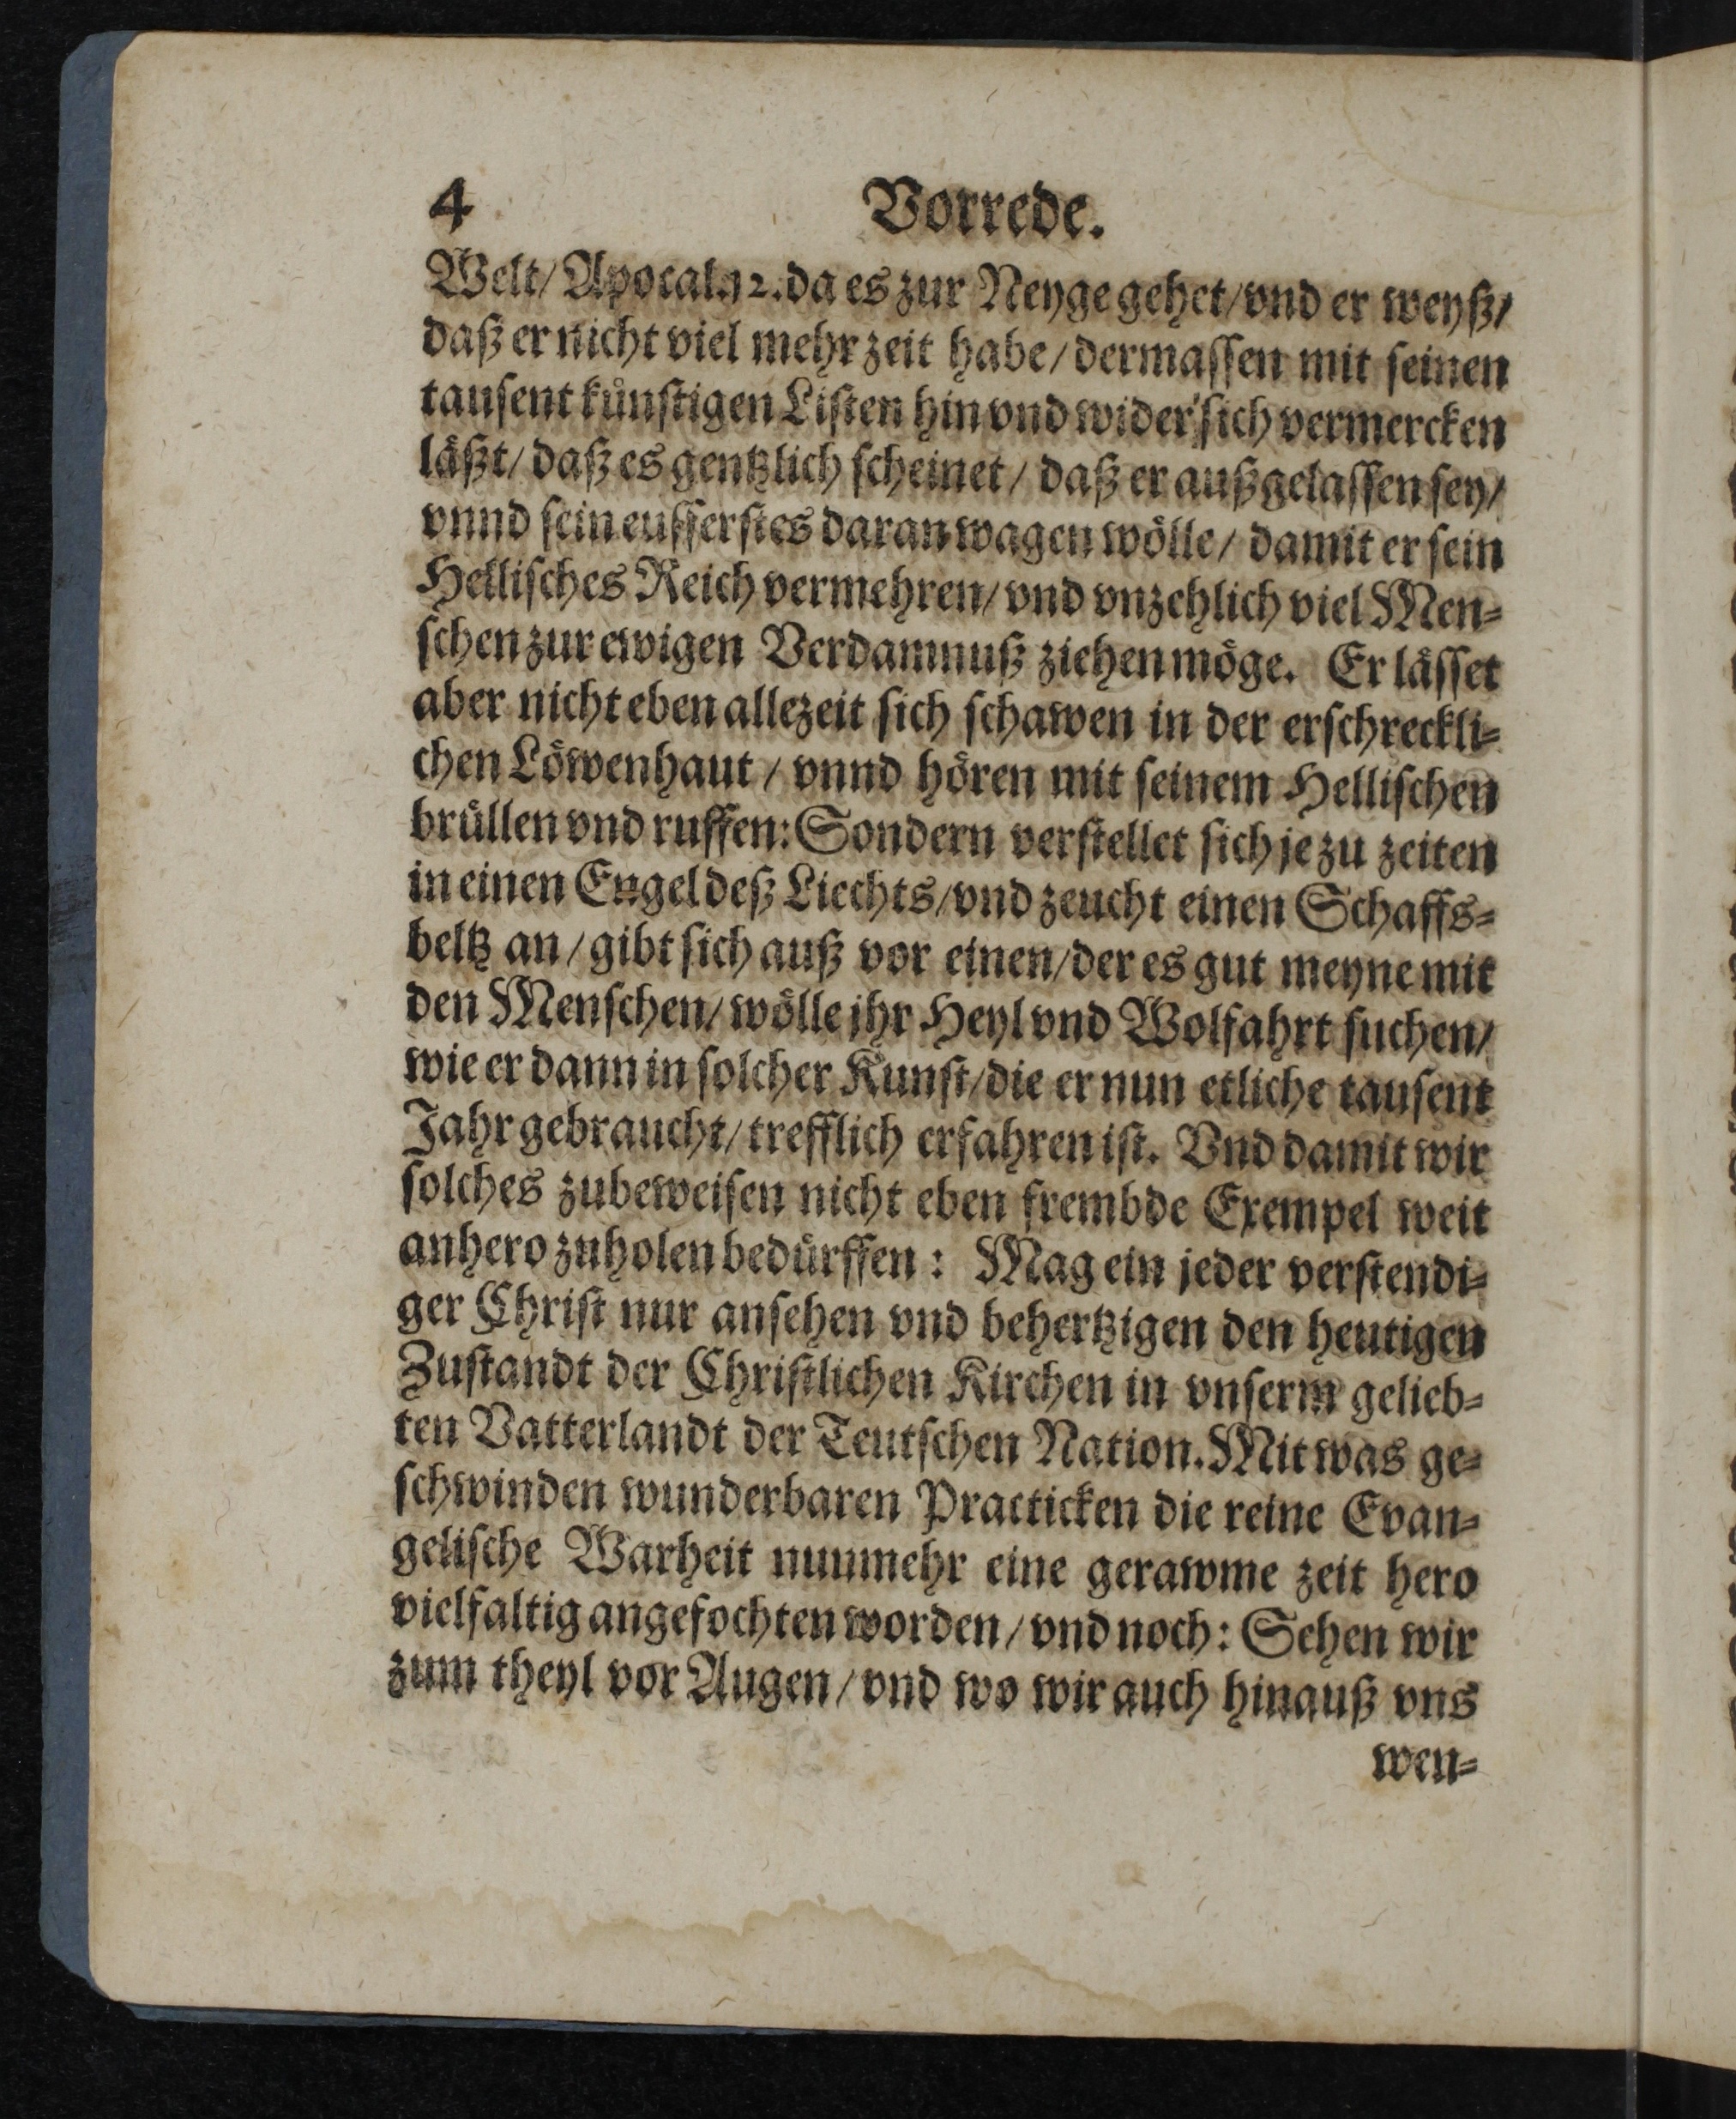 4 Vorrede.
Welt/ Apocal. 12. da es zur Neyge gehet/ vnd er weyß/
daß er nicht viel mehr zeit habe/ dermassen mit seinen
tausent kuͤnstigen Listen hin vnd wider sich vermercken
laͤßt/ daß es gentzlich scheinet/ daß er außgelassen sey/
vnnd sein eusserstes daran wagen woͤlle/ damit er sein
Hellisches Reich vermehren/ vnd vnzehlich viel Men-
schen zur ewigen Verdamnuß ziehen moͤge. Er laͤsset
aber nicht eben allezeit sich schawen in der erschreckli-
chen Loͤwenhaut / vnnd hoͤren mit seinem Hellischen
bruͤllen vnd ruffen: Sondern verstellet sich je zu zeiten
in einen Engel deß Liechts/ vnd zeucht einen Schaffs-
beltz an / gibt sich auß vor einen/ der es gut meyne mit
den Menschen/ woͤlle jhr Heyl vnd Wolfahrt suchen/
wie er dann in solcher Kunst/ die er nun etliche tausent
Jahr gebraucht/ trefflich erfahren ist. Vnd damit wir
solches zubeweisen nicht eben frembde Exempel weit
anhero zuholen beduͤrffen : Mag ein jeder verstendi-
ger Christ nur ansehen vnd behertzigen den heutigen
Zustandt der Christlichen Kirchen in vnserm gelieb-
ten Vatterlandt der Teutschen Nation. Mit was ge-
schwinden wunderbaren Practicken die reine Evan-
gelische Warheit nunmehr eine gerawme zeit hero
vielfaltig angefochten worden/ vnd noch: Sehen wir
zum theyl vor Augen/ vnd wo wir auch hinauß vns
wen-